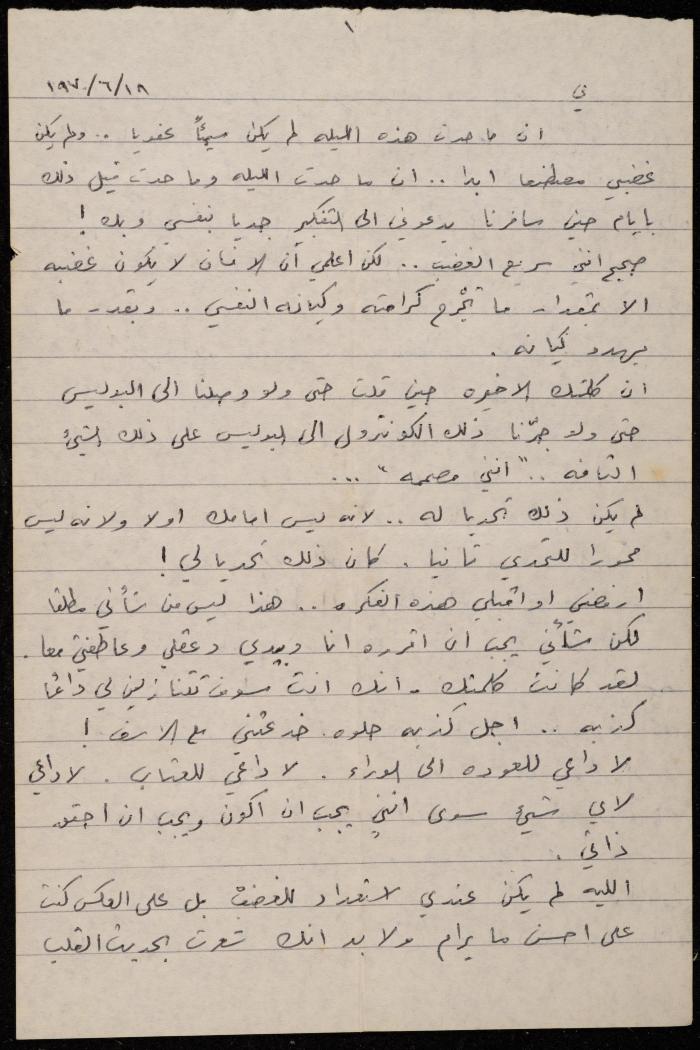 ١
في ١٩٧٠/٦/١٨
ان ما حدث هذه الليله لم يكن شيئاً عفويا .. ولم يكن
غضبي مصطنعا ابدا .. ان ما حدث الليله وما حدث قبل ذلك
بايام حين سافرنا يدعوني الى التفكير جديا بنفسي وبك !
صحيح انني سريع الغضب .. لكن اعلمي أن الانسان لا يكون غضبه
الا بمقدار ما تُجرح كرامته وكيانه النفسي .. وبقدر ما
يهدد كيانه .
ان كلمتك الاخيره حين قلت حتى ولو وصلنا الى البوليس
حتى ولو جرّنا ذلك الكونترول الى البوليس على ذلك الشيئ
التافه .. " انني مصممه " ...
لم يكن ذلك تحديا له .. لانه ليس امامك اولا ولانه ليس
محورا للتحدي ثانيا . كان ذلك تحديا لي !
ارفضي او اقبلي هذه الفكره .. هذا ليس من شأني مطلقا
لكن شأني يجب ان اقرره انا وبيدي وعقلي وعاطفتي معا .
لقد كانت كلمتك - انك انت سوف تتنازلين لي دائما
كذبه .. اجل كذبه حلوه خدعتني مع الاسف !
لا داعي للعوده الى الوراء . لا داعي للعتاب . لا داعي
لاي شيئ سوى انني يجب ان اكون ويجب ان احقق
ذاتي .
الليه لم يكن عندي استعداد للغضب بل على العكس كنت
على احسن ما يرام ولا بد انك شعرت بحديث القلب